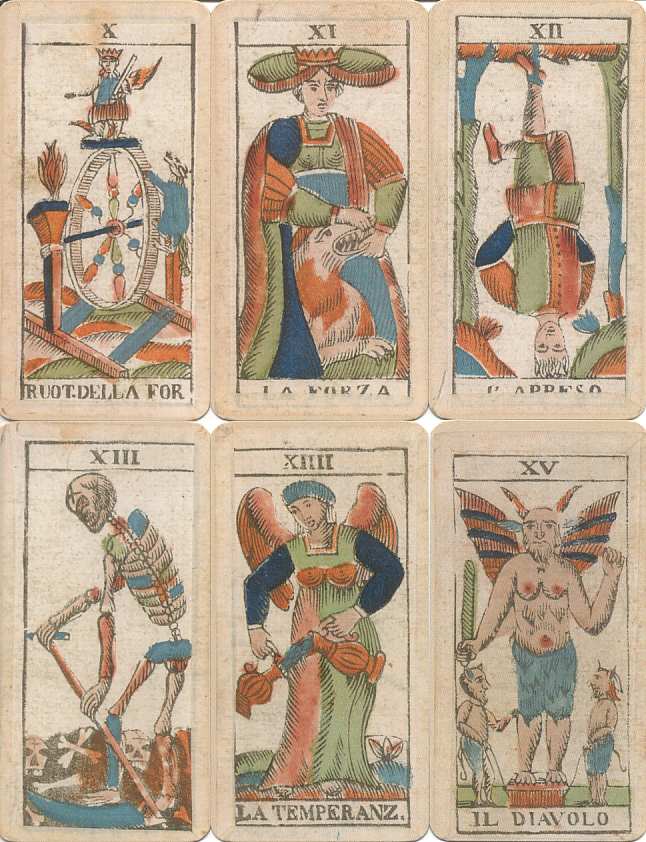 X
XI
XII
RUOT.DELLA FOR
LA FORZA
L'APPESO
XIII
XIIII
XV
LA TEMPERANZ.
IL DIAVOLO